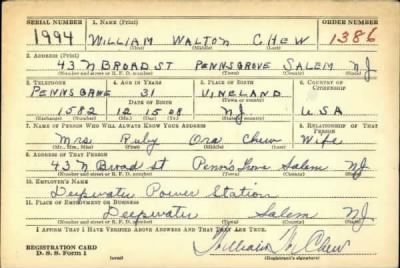 SERIAL NUMBER 1. NAME (Print) ORDER NUMBER
1994 WILLIAM WALTON CHEW 1386
(First) (Middle) (Last)
2. ADDRESS (Print)
43 N BROAD ST PENNSGROVE SALEM NJ
(Number and street or R. F. D. number) (Town) (County) (State)
3. TELEPHONE 4. AGE IN YEARS 5. PLACE OF BIRTH 6. COUNTRY OF CITIZENSHIP
PENNSGROVE 31 VINELAND
DATE OF BIRTH (Town or county)
1582 12 15 08 NJ USA
(Exchange) (Number) (Mo.) (Day) (Yr.) (State or country)
7. NAME OF PERSON WHO WILL ALWAYS KNOW YOUR ADDRESS 8. RELATIONSHIP OF THAT PERSON
Mrs Ruby Ora Chew Wife
(Mr., Mrs., Miss) (First) (Middle) (Last)
9. ADDRESS OF THAT PERSON
43 N Broad st Penns Grove Salem NJ
(Number and street or R. F. D. number) (Town) (County) (State)
10. EMPLOYER'S NAME
Deepwater Power Station
11. PLACE OF EMPLOYMENT OR BUSINESS
Deepwater Salem NJ
(Number and street or R. F. D. number) (Town) (County) (State)
I AFFIRM THAT I HAVE VERIFIED ABOVE ANSWERS AND THAT THEY ARE TRUE.
REGISTRATION CARD
D. S. S. Form 1 (over) William W Chew
(Registrant's signature)